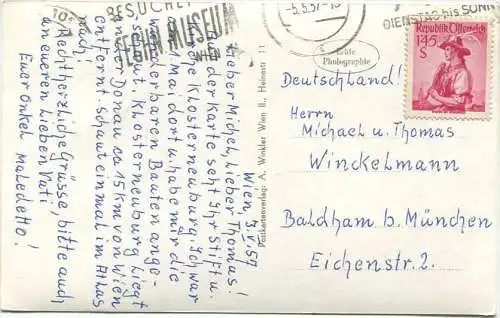 10
BESUCHET
MUSEUM
WIEN
-5.5.57-18
DIENSTAG bis SONN
Republik Österreich
1.45
S
Echte
Photographie
Postkartenverlag: A. Winkler Wien II., Heinestr. 11
Wien, 3.V.57
Lieber Michel, lieber Thomas!
Auf der Karte seht Ihr Stift u.
Kirche Klosterneuburg. Ich war
am 1. Mai dort u. habe mir die
wunderbaren Bauten ange-
schaut. Klosterneuburg liegt
an der Donau ca 15 km von Wien
entfernt. Schaut einmal im Atlas
nach!
Recht herzliche Grüsse, bitte auch
an eueren lieben Vati
Euer Onkel Maledetto!
Deutschland!
Herrn
Michael u. Thomas
Winckelmann
Baldham b. München
Eichenstr. 2.